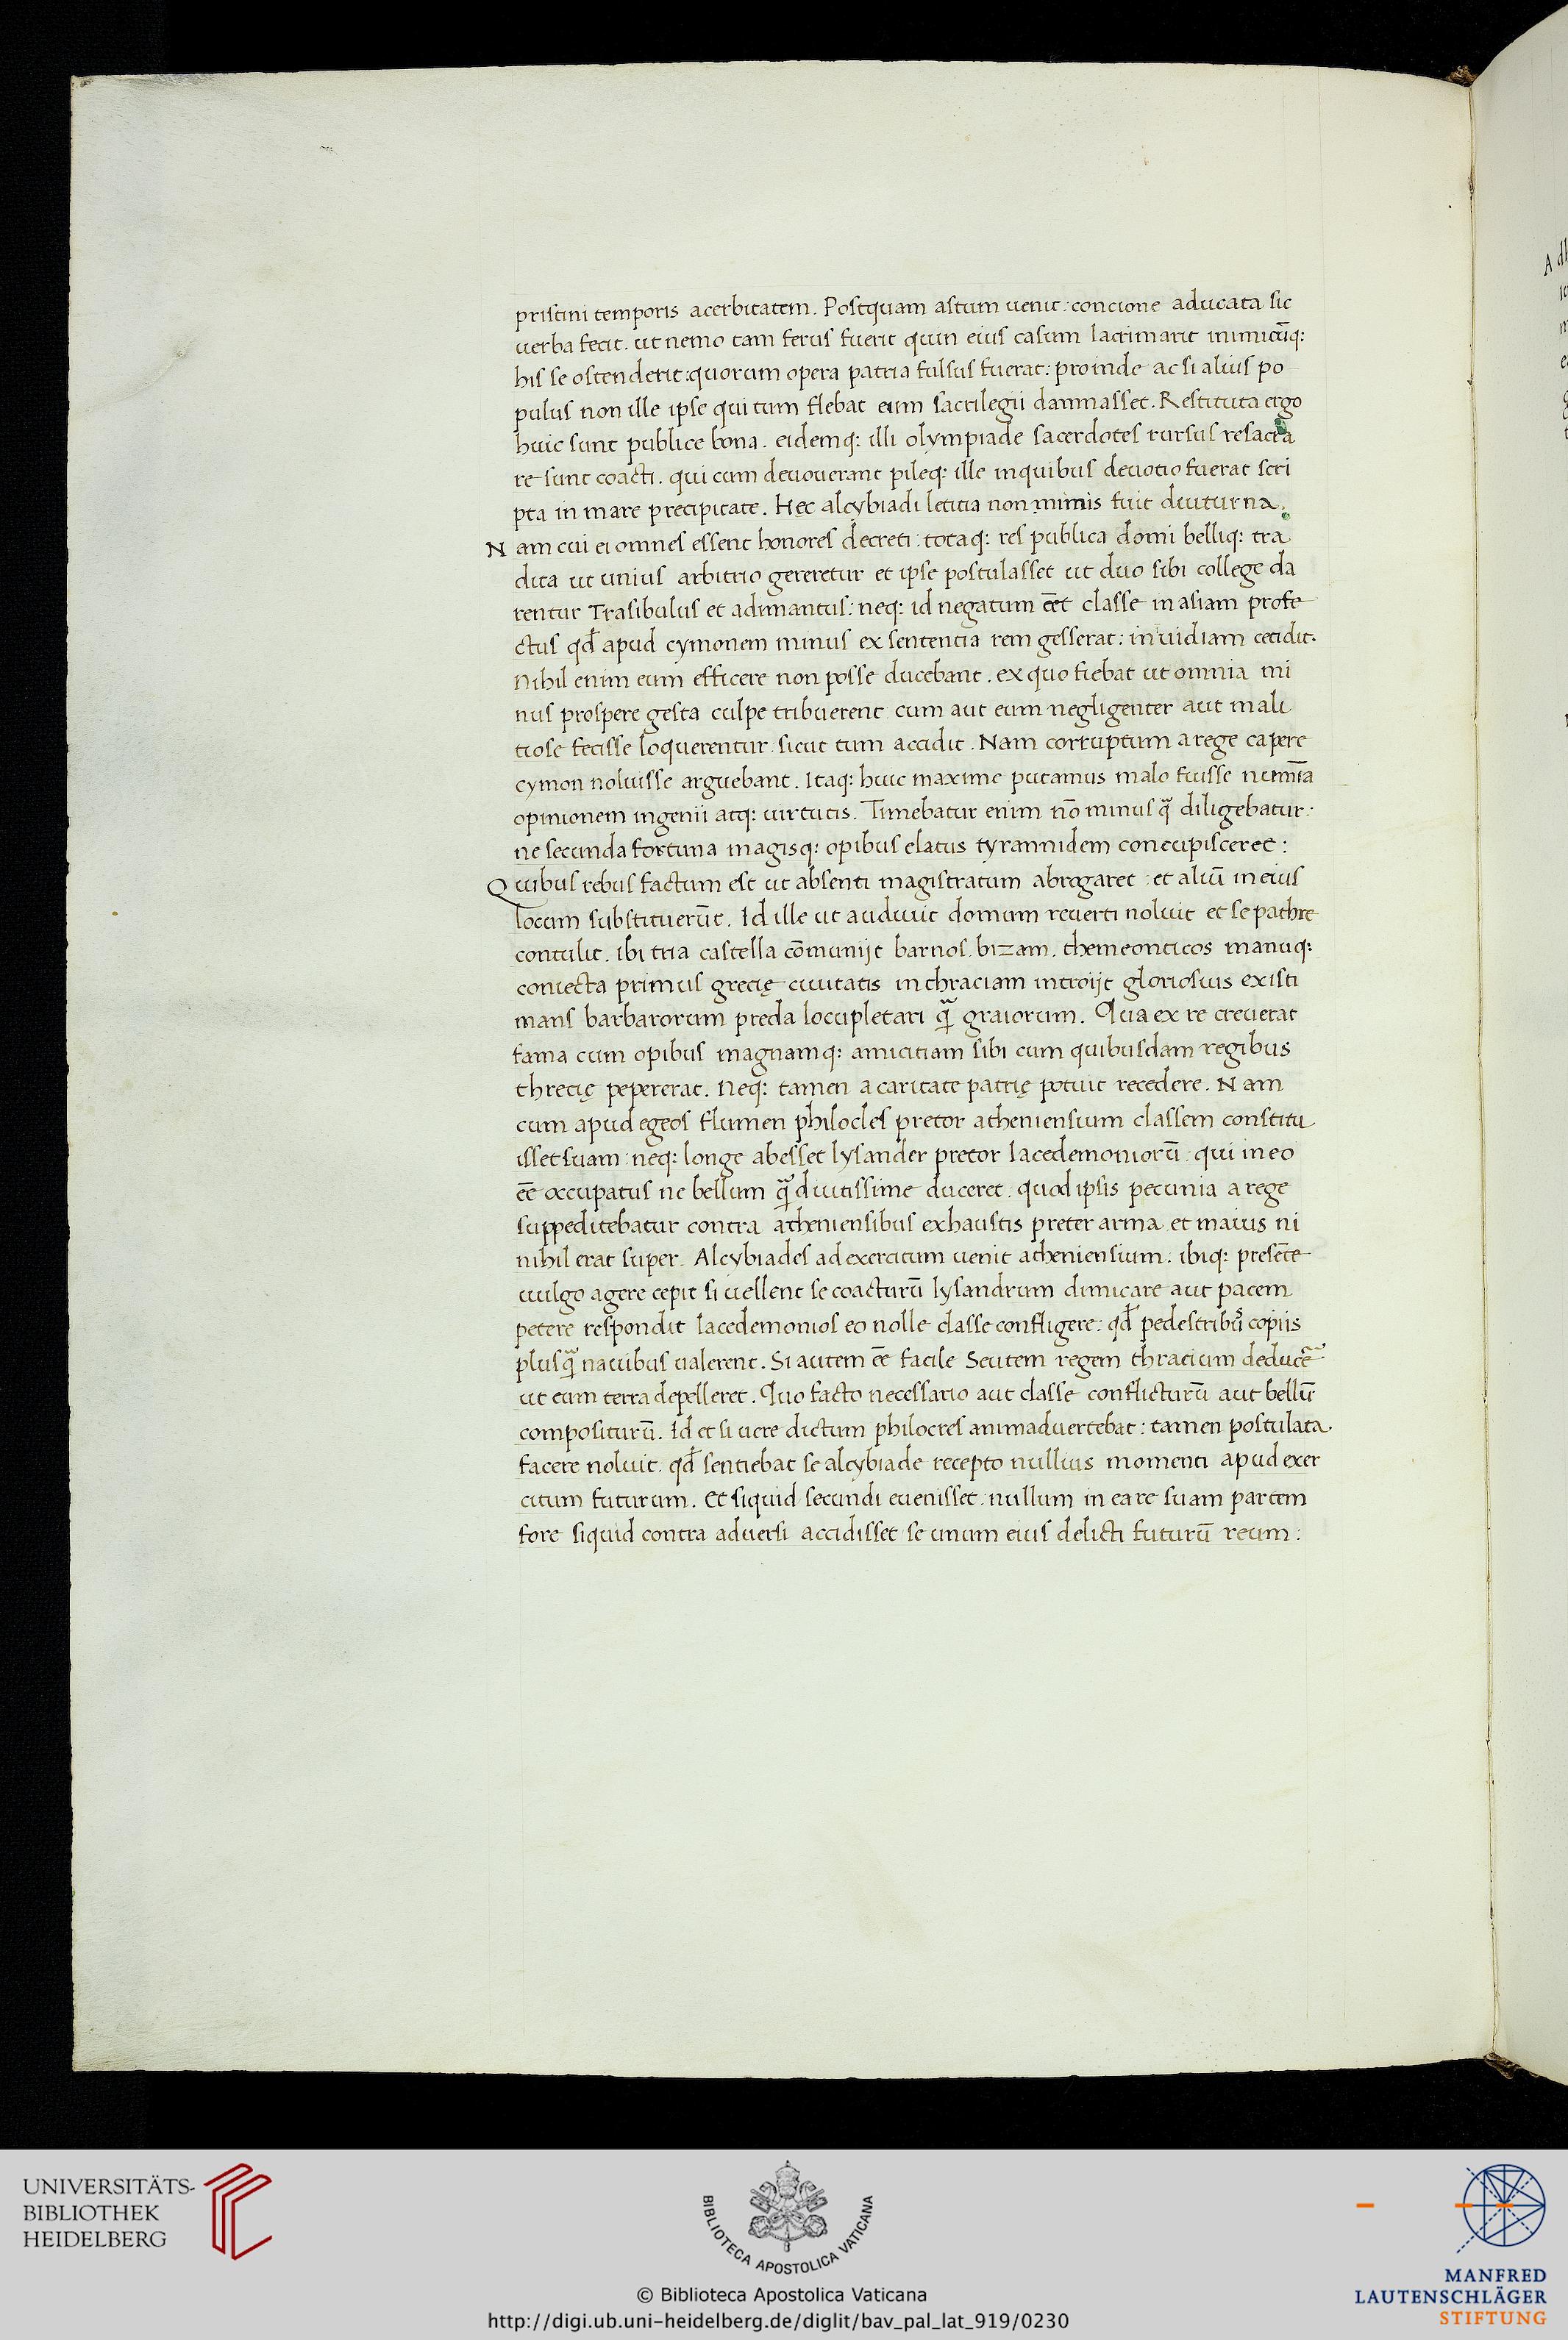 pristini temporis acerbitatem. Postquam astum uenit: concione aducata sic
uerba fecit. ut nemo tam ferus fuerit quin eius casum lacrimarit inimicūq:
his se ostenderit: quorum opera patria fulsus fuerat: proinde ac si alius po
pulus non ille ipse qui tum flebat eum sacrilegii damnasset. Restituta ergo
huic sunt publice bona. eidemq: illi olympiade sacerdotes rursus resacra
re sunt coacti. qui eum deuouerant pileq: ille in quibus deuotio fuerat scri
pta in mare precipitate. Hęc alcybiadi letitia non mimis fuit diuturna.
Nam cui ei omnes essent honores decreti: totaq: res publica domi belliq: tra
dita ut unius arbitrio gereretur et ipse postulasset ut duo sibi college da
rentur Trasibulus et adimantus: neq: id negatum eēt classe in asiam profe
ctus qd̄ apud cymonem minus ex sententia rem gesserat: in uidiam cecidit.
Nihil enim eum efficere non posse ducebant. ex quo fiebat ut omnia mi
nus prospere gesta culpe tribuerent cum aut eum negligenter aut mali
tiose fecisse loquerentur. sicut tum accidit. Nam corruptum a rege capere
cymon noluisse arguebant. Itaq: huic maxime putamus malo fuisse numīa
opinionem ingenii atq: uirtutis. Timebatur enim nō minus q̄ diligebatur.
ne secunda fortuna magisq: opibus elatus tyrannidem concupisceret:
Quibus rebus factum est ut absenti magistratum abrogaret: et aliū in eius
locum substituerūt. Id ille ut audiuit domum reuerti noluit et se pathre
contulit. ibi tria castella cōmunijt barnos. bizam. themeonticos manuq:
coniecta primus gręcię ciuitatis in thraciam introijt gloriosius existi
mans barbarorum preda locupletari q̄ graiorum. Qua ex re creuerat
fama cum opibus magnamq: amicitiam sibi cum quibusdam regibus
threcię pepererat. Neq: tamen a caritate patrię potuit recedere. Nam
cum apud egeos flumen philocles pretor atheniensium classem constitu
isset suam: neq: longe abesset lysander pretor lacedemoniorū: qui in eo
eē occupatus ne bellum q̄ diutissime duceret. quod ipsis pecunia a rege
suppeditebatur contra atheniensibus exhaustis preter arma et maius ni
nihil erat super. Alcybiades ad exercitum uenit atheniensium. ibiq: presēte
uulgo agere cepit si uellent se coacturū lysandrum dimicare aut pacem
petere respondit lacedemonios eo nolle classe confligere: qd̄ pedestribus copiis
plus q̄ nauibus ualerent. Si autem eē facile Seutem regem thracium deducē
ut eum terra depelleret. Quo facto necessario aut classe conflicturū aut bellū
compositurū. Id et si uere dictum philocres animaduertebat: tamen postulata
facere noluit. qd̄ sentiebat se alcybiade recepto nullius momenti apud exer
citum futurum. Et siquid secundi euenisset: nullum in ea re suam partem
fore siquid contra aduersi accidisset se unum eius delicti futurū reum:
UNIVERSITÄTS-
BIBLIOTHEK
HEIDELBERG
BIBLIOTECA APOSTOLICA VATICANA
© Biblioteca Apostolica Vaticana
http://digi.ub.uni-heidelberg.de/diglit/bav_pal_lat_919/0230
MANFRED
LAUTENSCHLÄGER
STIFTUNG